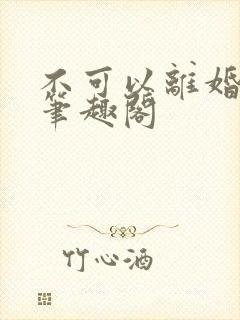 不可以離婚
筆趣閣
竹心酒